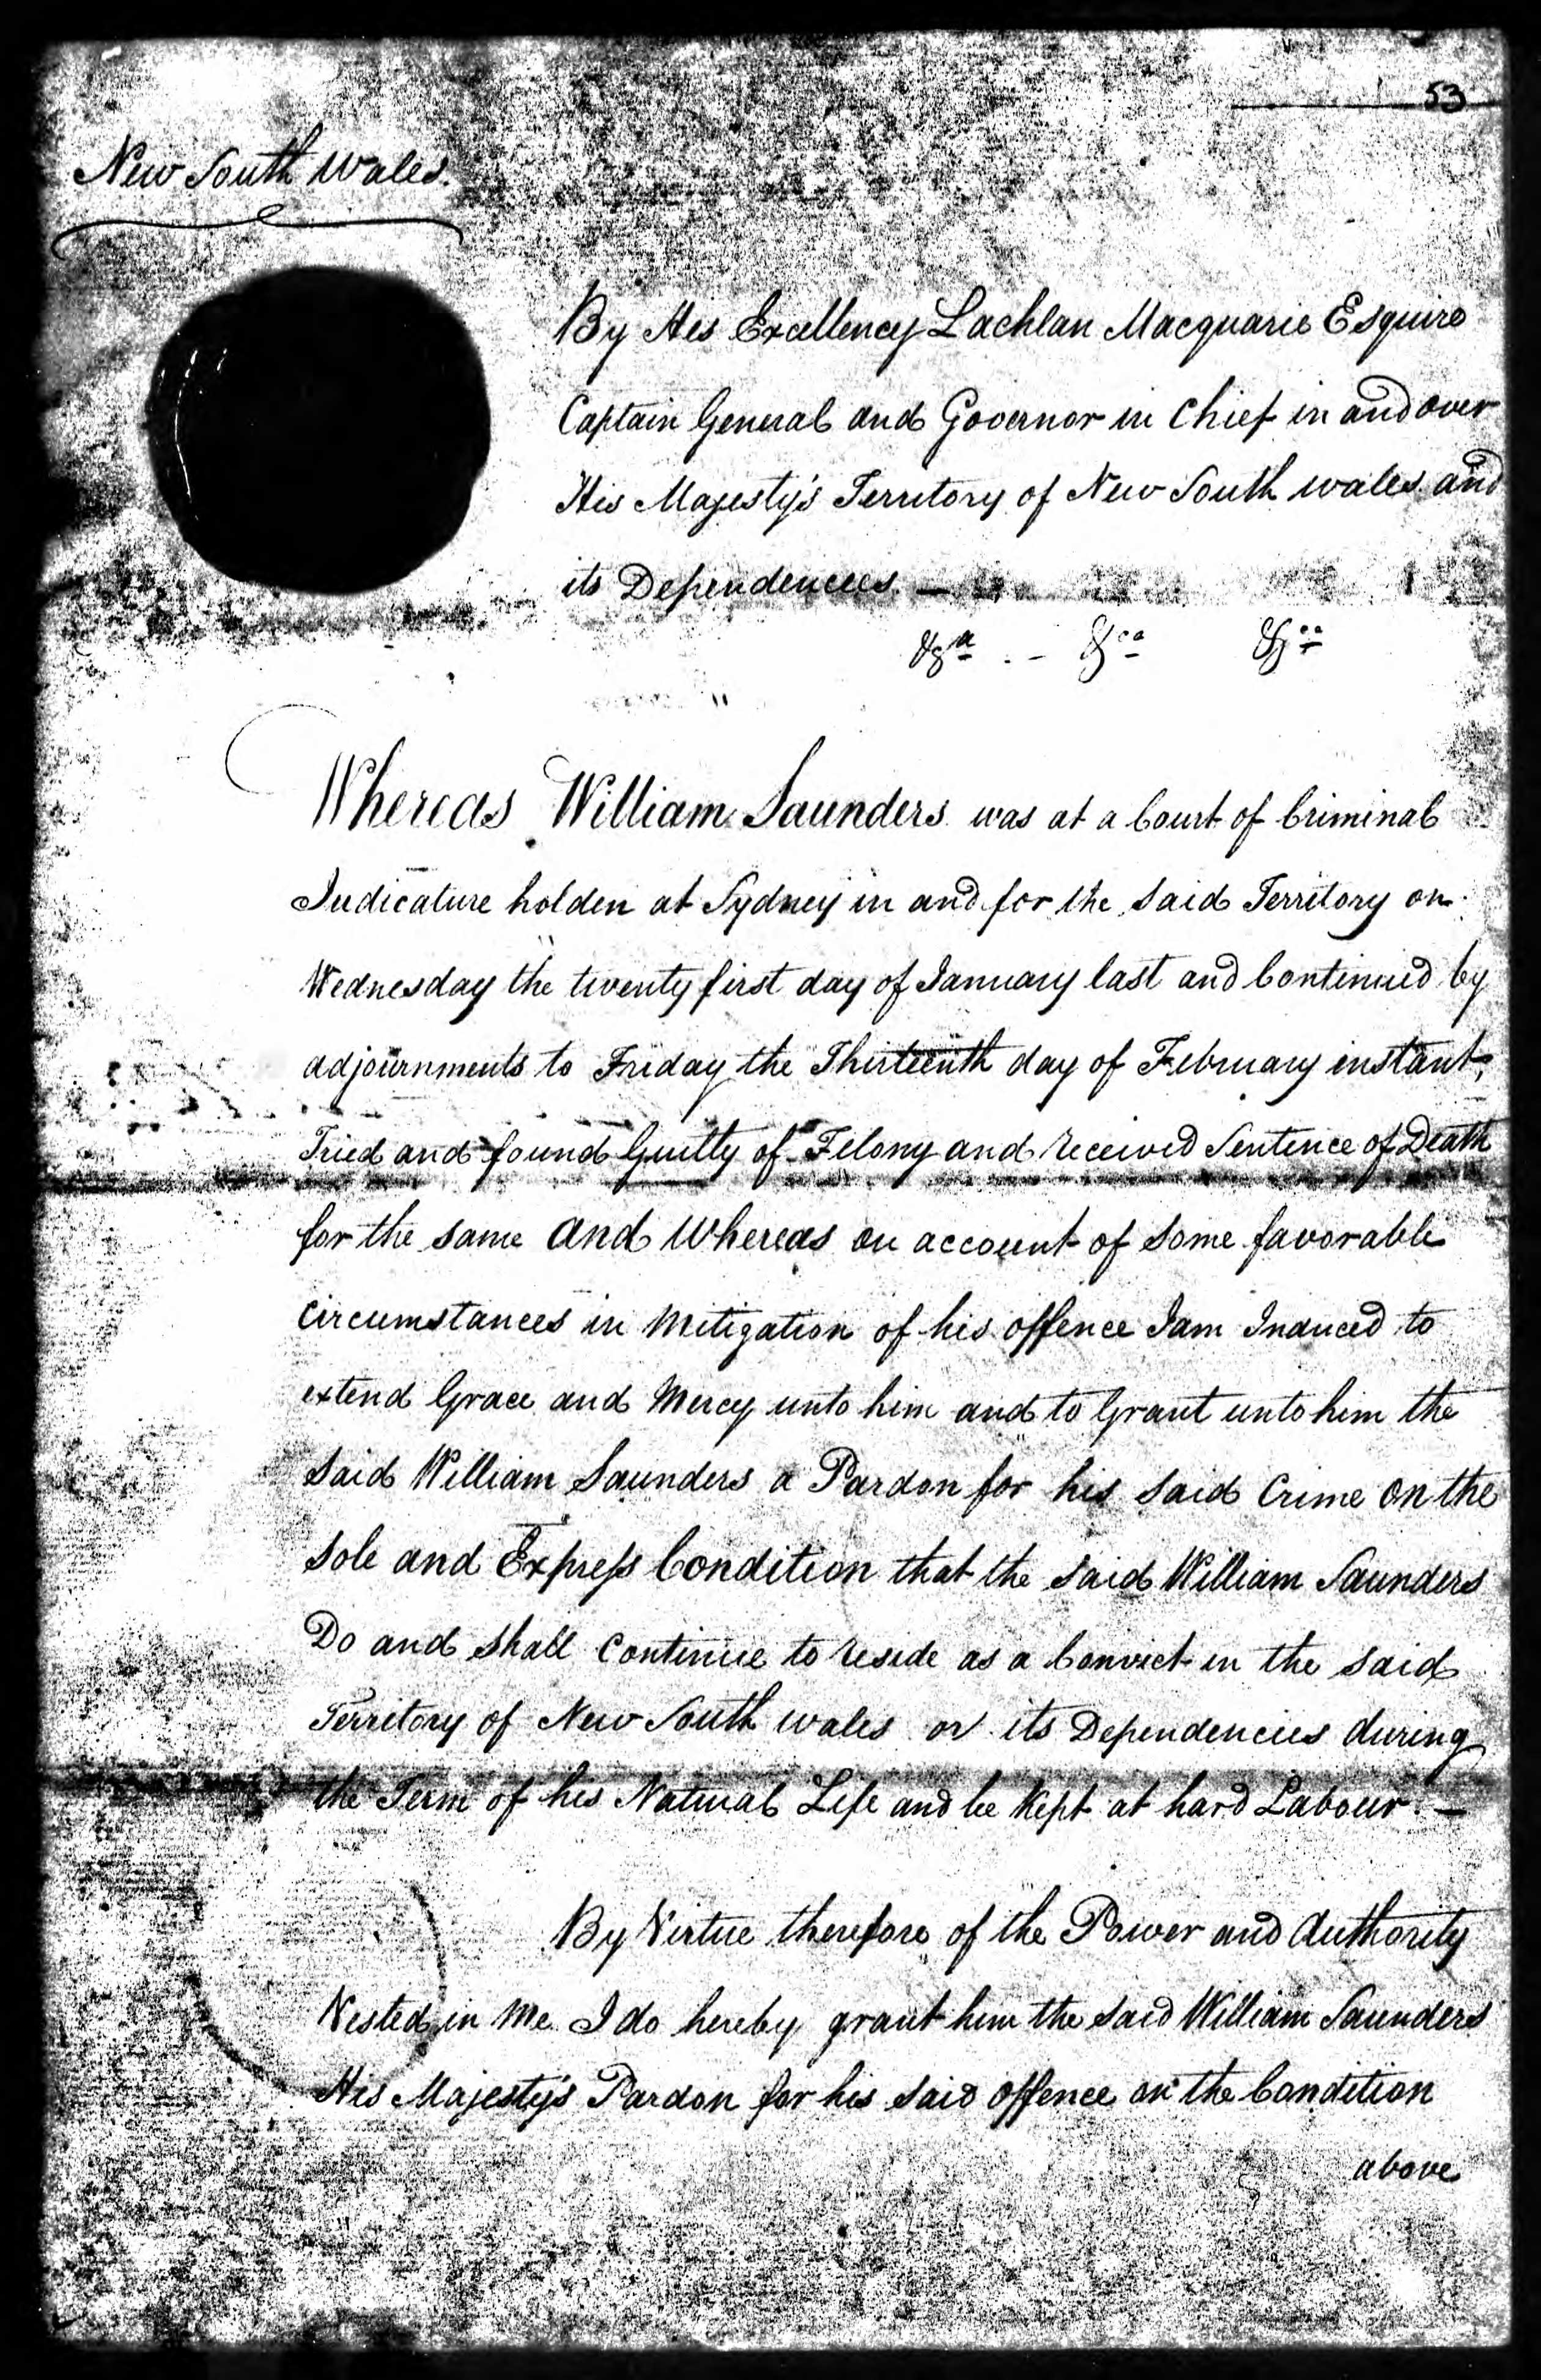 53
New South Wales.
By His Excellency Lachlan Macquarie Esquire
Captain General and Governor in Chief in and over
His Majesty's Territory of New South wales and
its Dependencies. —
&ca . – &ca &ca
Whereas William Saunders was at a Court of Criminal
Judicature holden at Sydney in and for the said Territory on
Wednesday the twenty first day of January last and Continued by
adjournments to Friday the Thirteenth day of February instant,
Tried and found Guilty of Felony and received Sentence of Death
for the same and Whereas on account of some favorable
circumstances in Mitigation of his offence I am Induced to
extend Grace and Mercy unto him and to Grant unto him the
said William Saunders a Pardon for his said Crime on the
sole and Express Condition that the said William Saunders
Do and shall Continue to reside as a Convict in the said
Territory of New South wales or its Dependencies during
the Term of his Natural Life and be Kept at hard Labour. —
By Virtue therefore of the Power and Authority
Vested in Me I do hereby grant him the said William Saunders
His Majesty's Pardon for his said offence on the Condition
above